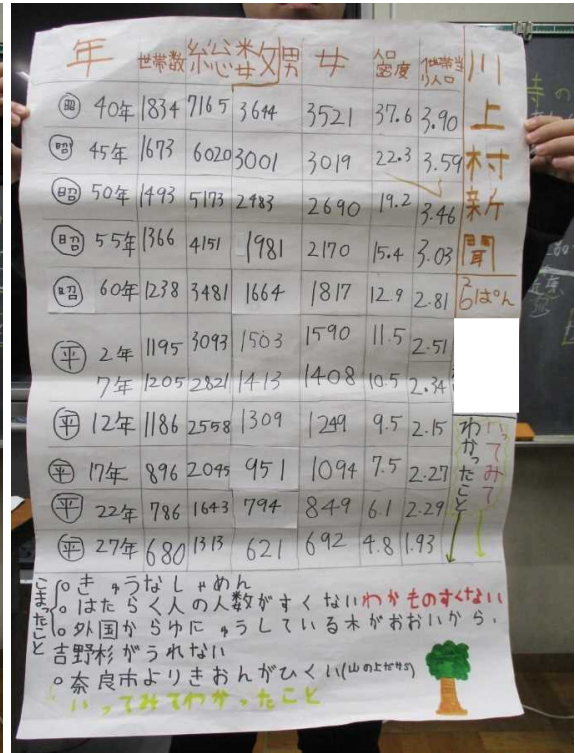 年 世帯数 総数 男 女 人口密度 1世帯当り人口
昭 40年 1834 7165 3644 3521 37.6 3.90
昭 45年 1673 6020 3001 3019 22.3 3.59
昭 50年 1493 5173 2483 2690 19.2 3.46
昭 55年 1366 4151 1981 2170 15.4 3.03
昭 60年 1238 3481 1664 1817 12.9 2.81
平 2年 1195 3093 1503 1590 11.5 2.51
7年 1205 2821 1413 1408 10.5 2.34
平 12年 1186 2558 1309 1249 9.5 2.15
平 17年 896 2045 951 1094 7.5 2.27
平 22年 786 1643 794 849 6.1 2.29
平 27年 680 1313 621 692 4.8 1.93
川上村新聞
ろぱん
いってみて
わかったこと
こまったこと
きゅうなしゃめん
はたらく人の人数がすくないわかものすくない
外国からゆにゅうしている木がおおいから、
吉野杉がうれない
奈良市よりきおんがひくい(山の上だから)
いってみてわかったこと